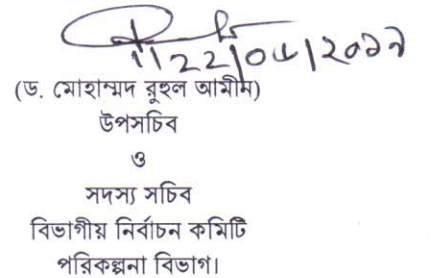 22/০৫/২০১৭
(ড. মোহাম্মদ রুহুল আমীন)
উপসচিব
ও
সদস্য সচিব
বিভাগীয় নির্বাচন কমিটি
পরিকল্পনা বিভাগ।